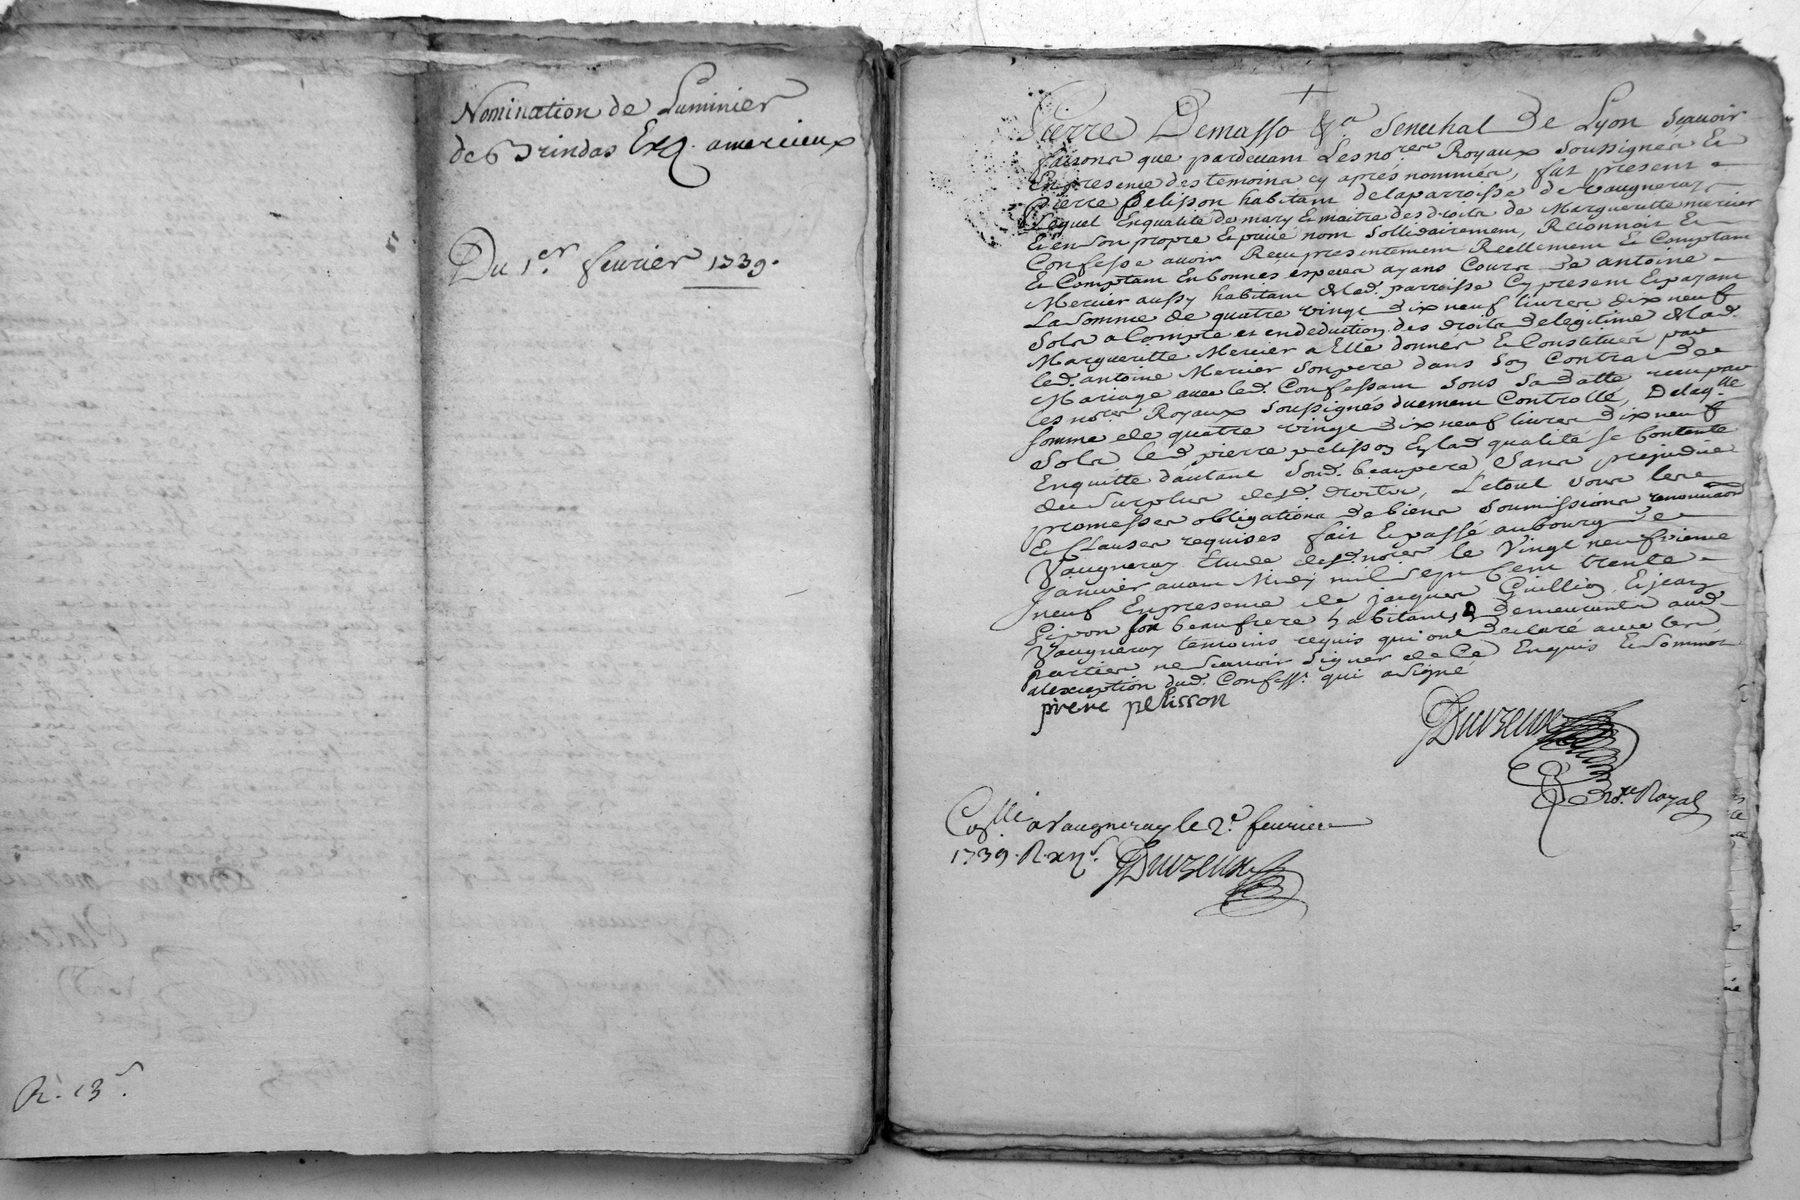 Nomination de Luminier
de Brindas Et a. amercieux
Du 1er. feuvrier 1739.
R. 13s.
Pierre Demasso &a. Senechal de Lyon Scauoir
faisons que pardeuant Les nores. Royaux soussignés Et
En presence des temoins cy apres nommés, fut present
Pierre Pelisson habitant de la parroisse de Vaugneray
Lequel En qualité de mary Et maitre des droits de Margueritte mercier
Et en son propre Et priué nom sollidairement, Reconnoit Et
Confesse auoir Receu presentement Reellement Et Comptant
Et Comptant En bonnes especes ayans Cours de antoine
Mercier aussy habitant de lad. parroisse Cy present Et payant
La somme de quatre vingt dix neuf liures dix neuf
Sols a Compte et en deduction des droits de legitime de lad.
Margueritte Mercier a Elle donnés Et Constitués par
led. antoine Mercier son pere dans son Contrat de
Mariage auec led. Confessant sous sa datte receu par
les nores. Royaux soussignés duement Controllé, De laqlle
somme de quatre vingt dix neuf liures dix neuf
Sols led. pierre pelisson En lad. qualité se Contente
En quitte d'autant sond. beaupere, Sans prejudice
du surplus desd. droits, Le tout sous les
promesses obligations de biens soumissions renonciaons
Et Clauses requises fait Et passé au bourg de
Vaugneray Etude desd. nores. le Vingt neufvieme
Januier auant Midy mil sept Cent trente
neuf En presence de jacques Guillin, Et jean
Gipon son beaufrere habitants Demeurants aud.
Vaugneray temoins requis qui ont declaré auec les
parties ne scauoir signer de Ce Enquis Et sommés
a l'exception dud. Confesst. qui a signé
pierre pelisson
Duvzeux
Nore. Royal
Conllé a Vaugneray le 2e. feurier
1739. R. xijs. Duvzeux